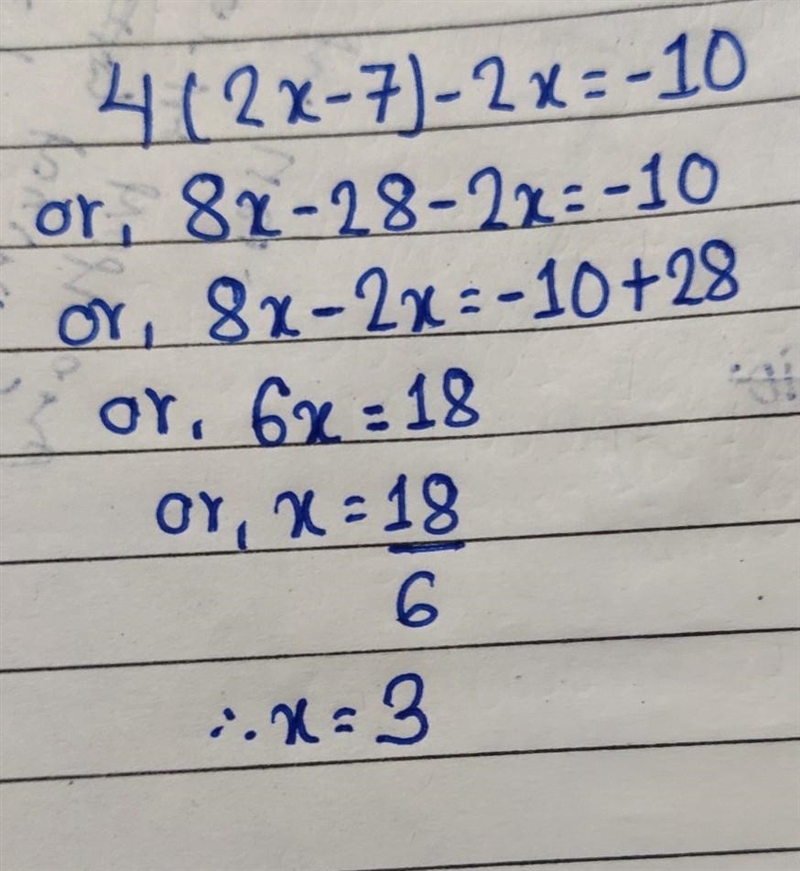 4(2x-7)-2x=-10
or, 8x-28-2x=-10
or, 8x-2x=-10+28
or, 6x=18
or, x=18/6
∴x=3